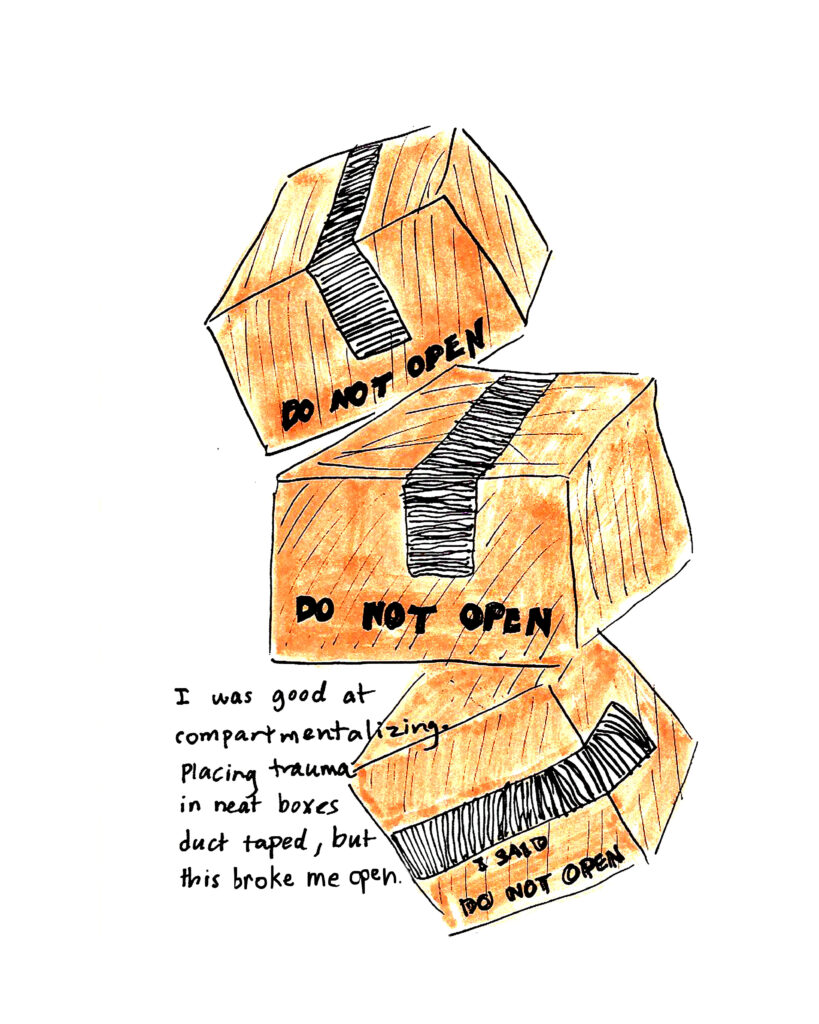 DO NOT OPEN
DO NOT OPEN
I was good at
compartmentalizing.
Placing trauma
in neat boxes
duct taped, but
this broke me open.
I SAID
DO NOT OPEN